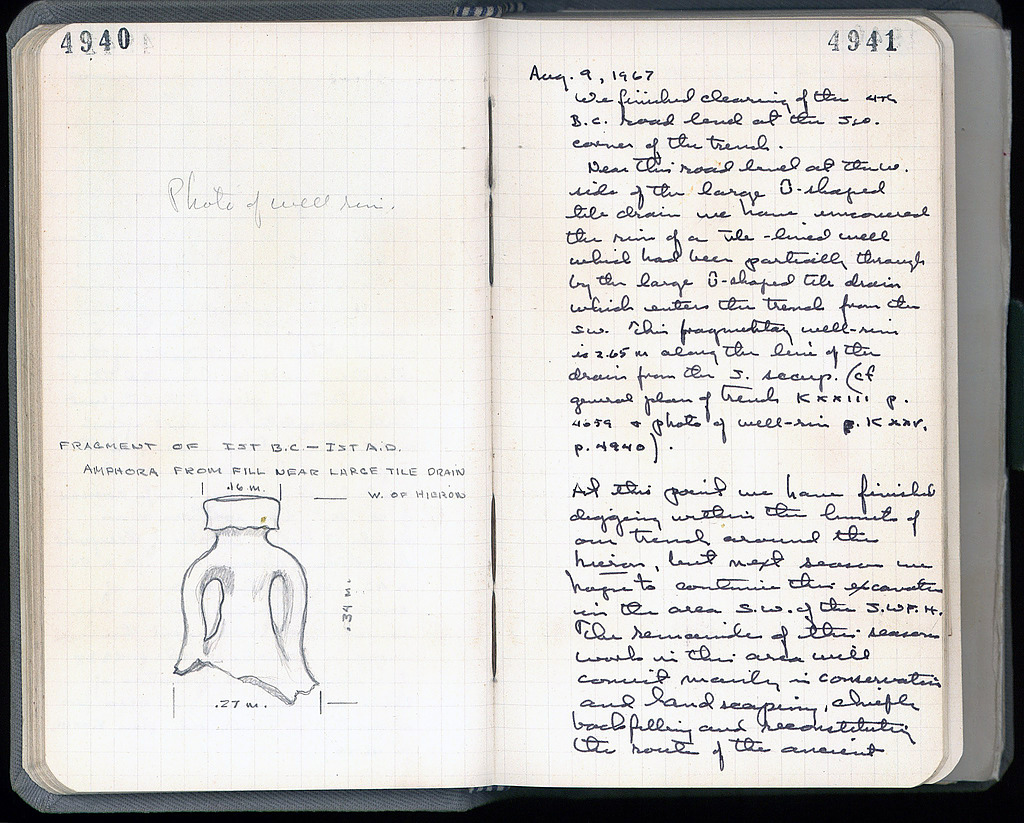 4940
Photo of well rim.
FRAGMENT OF IST B.C. – IST A.D.
AMPHORA FROM FILL NEAR LARGE TILE DRAIN
W. OF HIERON
.16 m.
.34 m.
.27 m.
4941
Aug. 9, 1967
We finished clearing of the 4th
B.C. road level at the S.W.
corner of the trench.
Near this road level at the W.
side of the large U-shaped
tile drain we have uncovered
the rim of a tile-lined well
which had been partially through
by the large U-shaped tile drain
which enters the trench from the
SW. This fragmentary well-rim
is 2.65 m along the line of the
drain from the S. scarp. (cf
general plan of trench KXXIII p.
4659 & photo of well-rim p. KXXV.
p. 4940).
At this point we have finished
digging within the limits of
our trench around the
hieron, but next season we
hope to continue this excavation
in the area S.W. of the S.W.F.H.
The remainder of this seasons
work in this area will
consist mainly in conservation
and landscaping, chiefly
backfilling and reconstituting
the route of the ancient